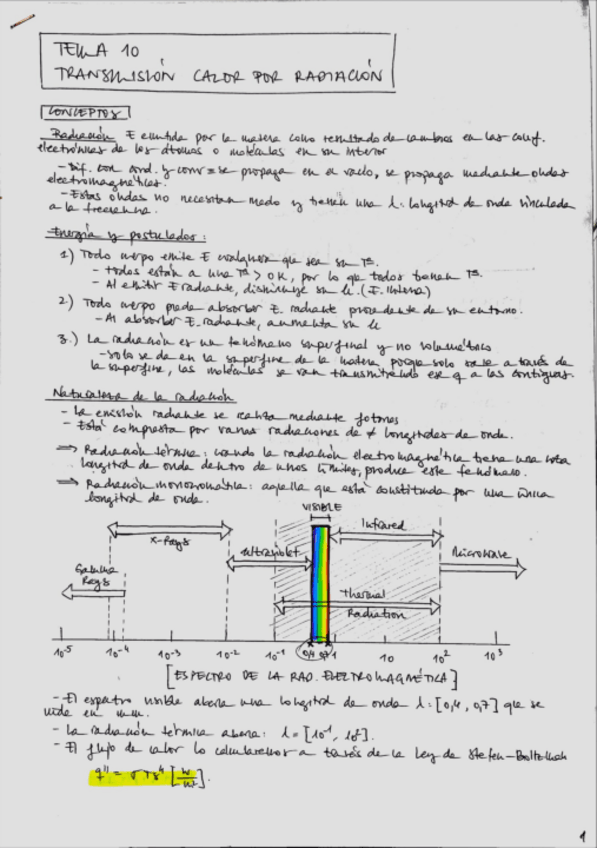 TEMA 10
TRANSMISIÓN CALOR POR RADIACIÓN
CONCEPTOS
Radiación E emitida por la materia como resultado de cambios en las conf.
electrónicas de los átomos o moléculas en su interior
- Dif. con cond. y conv = se propaga en el vacío, se propaga mediante ondas
electromagnéticas.
- Estas ondas no necesitan medio y tienen una λ: longitud de onda vinculada
a la frecuencia.
Energía y postulados:
1) Todo cuerpo emite E cualquiera que sea su Tª.
- todos están a una Tª > 0K, por lo que todos tienen Tª.
- Al emitir E radiante, disminuye su u. (E. interna)
2) Todo cuerpo puede absorber E. radiante procedente de su entorno.
- Al absorber E. radiante, aumenta su u
3.) La radiación es un fenómeno superficial y no volumétrico
- solo se da en la superficie de la materia porque solo sale a través de
la superficie, las moléculas se van transmitiendo ese q a las contiguas.
Naturaleza de la radiación
- La emisión radiante se realiza mediante fotones
- Está compuesta por varias radiaciones de ≠ longitudes de onda.
⇒ Radiación térmica: cuando la radiación electromagnética tiene una
longitud de onda dentro de unos límites, produce este fenómeno.
⇒ Radiación monocromática: aquella que está constituida por una única
longitud de onda.
VISIBLE
X-Rays
Infrared
Ultraviolet
Microwave
Gamma
Rays
Thermal
Radiation
10⁻⁵ 10⁻⁴ 10⁻³ 10⁻² 10⁻¹ 0,4 0,7 1 10 10² 10³
[ESPECTRO DE LA RAD. ELECTROMAGNÉTICA]
- El espectro visible abarca una longitud de onda λ: [0,4, 0,7] que se
mide en
- La radiación térmica abarca: λ = [10⁻¹, 10²].
- El flujo de calor lo calcularemos a través de la Ley de Stefan-Boltzman
q'' = σTs⁴ [W/m²].
1